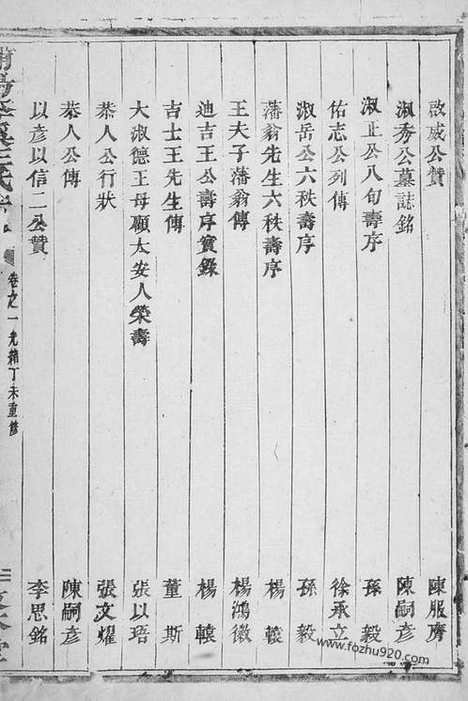 啟咸公贊 陳服膺
淑秀公墓誌銘 陳嗣彥
淑止公八旬壽序 孫毅
佑志公列傳 徐承立
淑岳公六秩壽序 孫毅
藩翁先生六秩壽序 楊轅
王夫子藩翁傳 楊鴻徽
迪吉王公壽序實錄 楊轅
吉士王先生傳 董斯
大淑德王母顧太安人榮壽 張以珸
恭人公行狀 張文燿
恭人公傳 陳嗣彥
以彥以信二公贊 李思銘
卷之一 光緒丁未重修
www.fozhu920.com